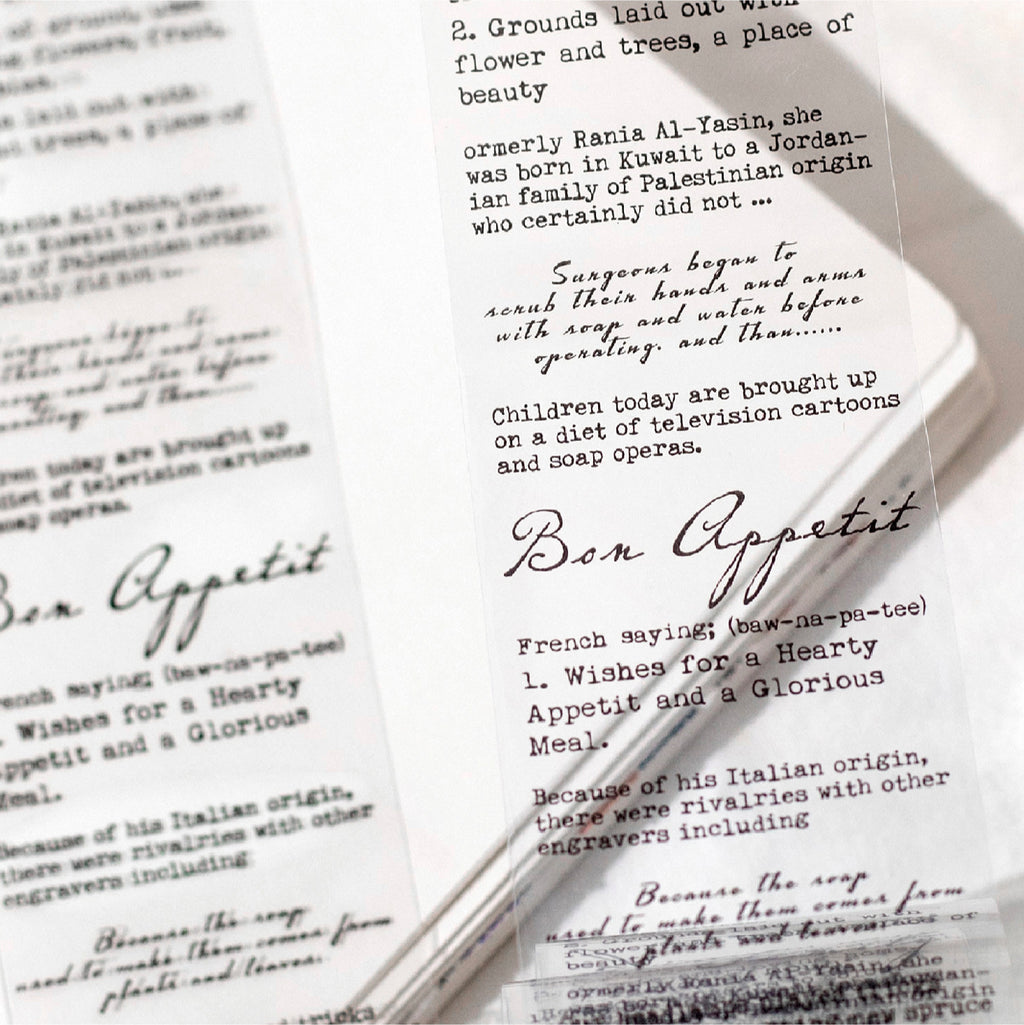 of ground, used
flowers, fruit,
laid out with
trees, a place of
Rania Al-Yasin, she
in Kuwait to a Jordan-
ly of Palestinian origin
tainly did not ...
Surgeons began to
their hands and arms
soap and water before
ating. and than......
ren today are brought up
diet of television cartoons
soap operas.
Bon Appetit
rench saying; (baw-na-pa-tee)
. Wishes for a Hearty
ppetit and a Glorious
Meal.
Because of his Italian origin,
there were rivalries with other
engravers including
Because the soap
used to make them comes from
plants and leaves.
2. Grounds laid out with
flower and trees, a place of
beauty
ormerly Rania Al-Yasin, she
was born in Kuwait to a Jordan-
ian family of Palestinian origin
who certainly did not ...
Surgeons began to
scrub their hands and arms
with soap and water before
operating. and than......
Children today are brought up
on a diet of television cartoons
and soap operas.
Bon Appetit
French saying; (baw-na-pa-tee)
1. Wishes for a Hearty
Appetit and a Glorious
Meal.
Because of his Italian origin,
there were rivalries with other
engravers including
Because the soap
used to make them comes from
plants and leaves.
beauty
ormerly Rania Al-Yasin, she
new spruce